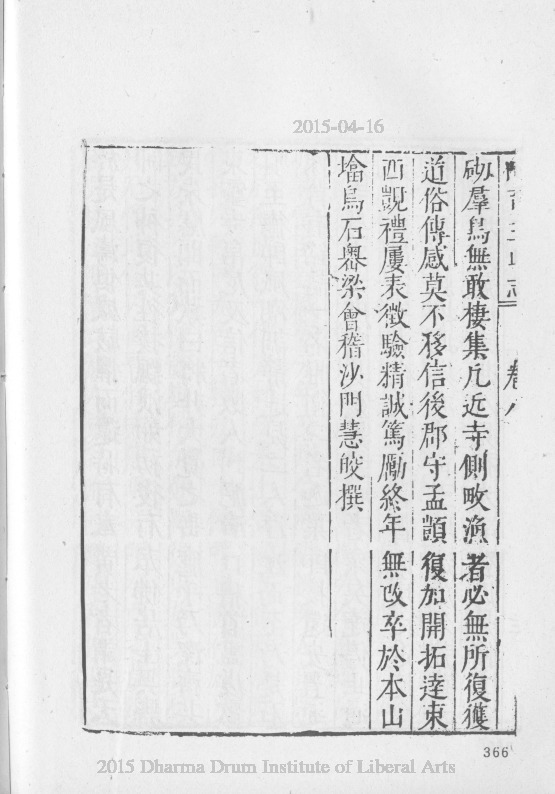 2015-04-16
育王山志 卷八
砌羣鳥無敢棲集凡近寺側畋漁者必無所復獲
道俗傳感莫不移信後郡守孟顗復加開拓達東
西覲禮屢表徵驗精誠篤勵終年無改卒於本山
塔烏石嶴梁會稽沙門慧皎撰
366
2015 Dharma Drum Institute of Liberal Arts